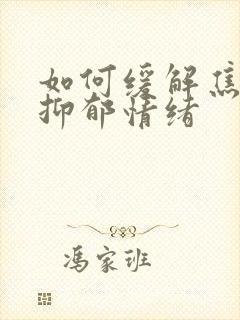 如何缓解焦
抑郁情绪
冯家班